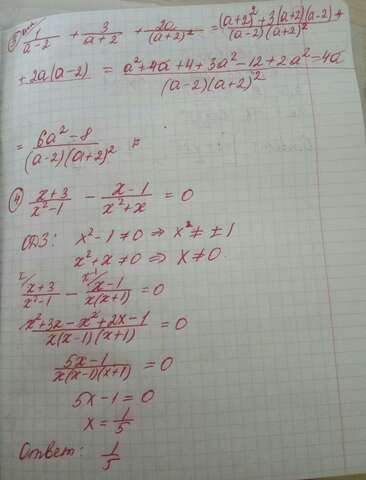 ③ 1/(a-2) + 3/(a+2) + 2a/(a+2)² = ((a+2)² + 3(a+2)(a-2) +)/((a-2)(a+2)²)
+ 2a(a-2) = (a²+4a+4+3a²-12+2a²-4a)/((a-2)(a+2)²)
= (6a²-8)/((a-2)(a+2)²)
④ (x+3)/(x²-1) - (x-1)/(x²+x) = 0
ОДЗ: x²-1≠0 ⇒ x²≠ ±1
x²+x≠0 ⇒ x≠0
x/ (x+3)/(x²-1) - x-1/ (x-1)/(x(x+1)) = 0
(x²+3x-x²+2x-1)/(x(x-1)(x+1)) = 0
(5x-1)/(x(x-1)(x+1)) = 0
5x-1=0
x = 1/5
Ответ: 1/5